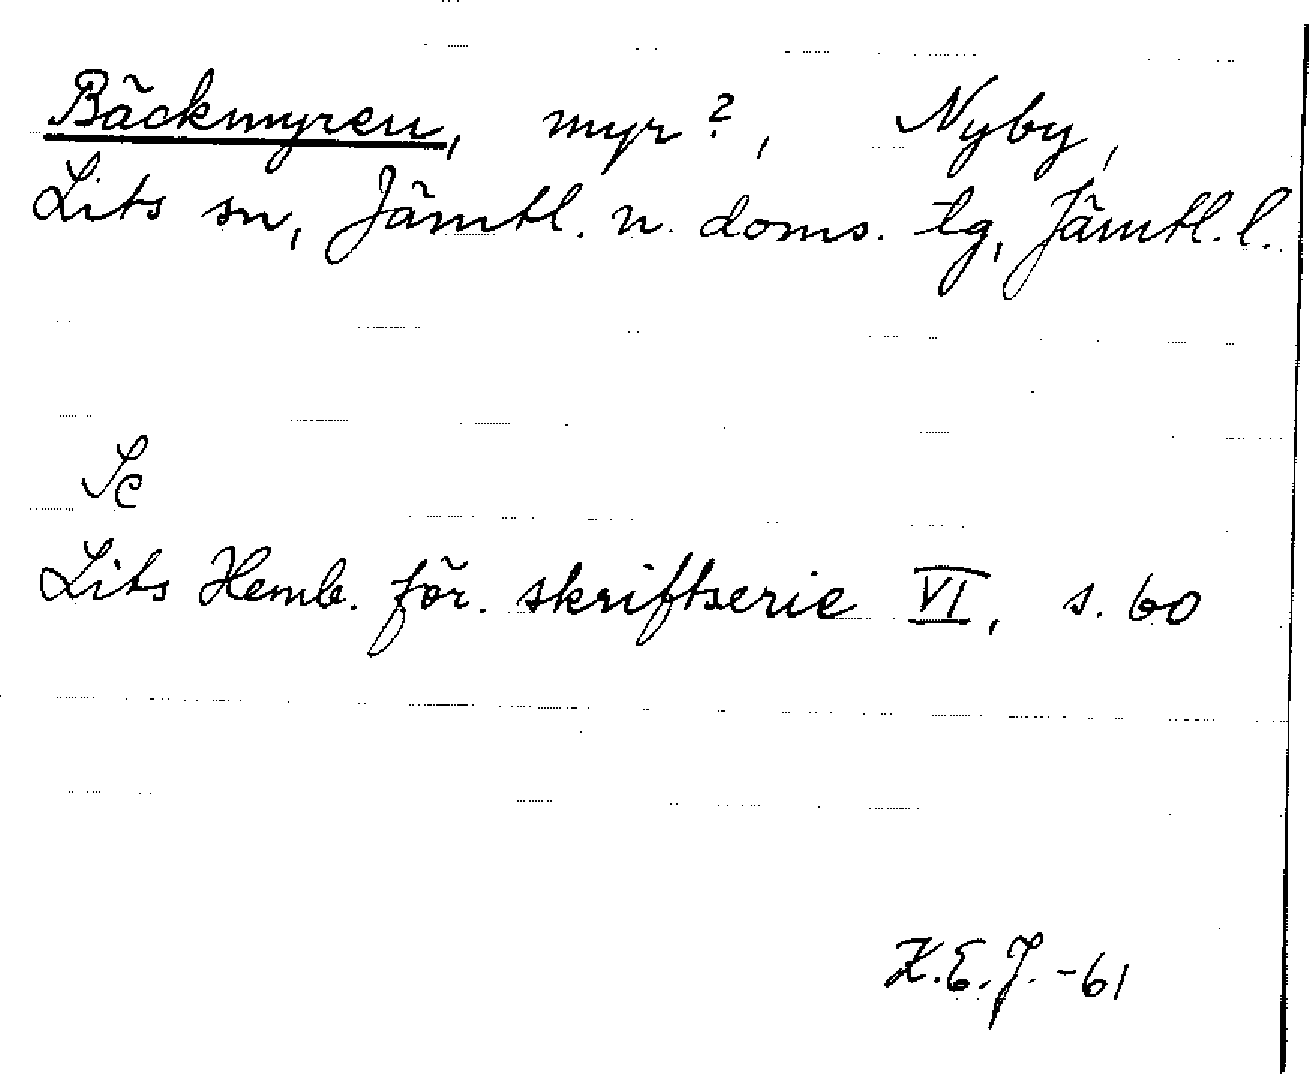 Bäckmyren, myr?, Nyby,
Lits sn, Jämtl. n. doms. tg, Jämtl. l.
Se
Lits Hemb. för. skriftserie VI, s. 60
K.E.J. -61